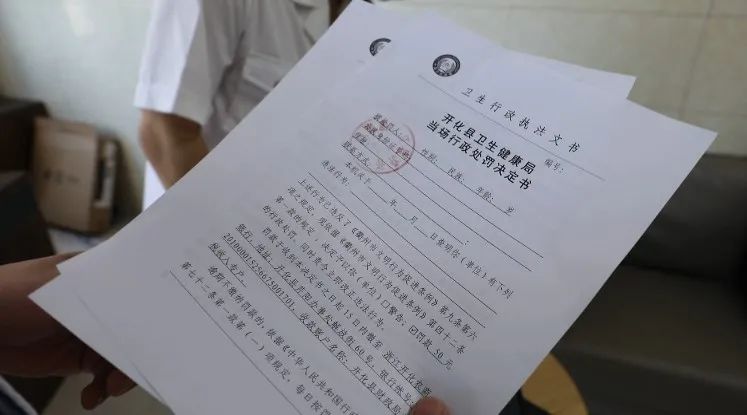 卫生行政执法文书
编号:
开化县卫生健康局
当场行政处罚决定书
被处罚人:
性别: 民族: 年龄: 岁
联系方式:
本机关于 年 月 日查明你(单位)有下列
违法行为:
上述行为已违反了《衢州市文明行为促进条例》第九条第六
项之规定,现依据《衢州市文明行为促进条例》第四十二条
第一款的规定,决定予以你(单位)口警告;☑罚款 50 元
的行政处罚,同时责令立即改正违法行为。
罚款于收到本决定书之日起 15 日内缴至 浙江开化农商
银行
税收入专户
逾期不缴纳罚款的,依据《中华人民共和国行政
第七十二条第一款第(一)项规定,每日按罚